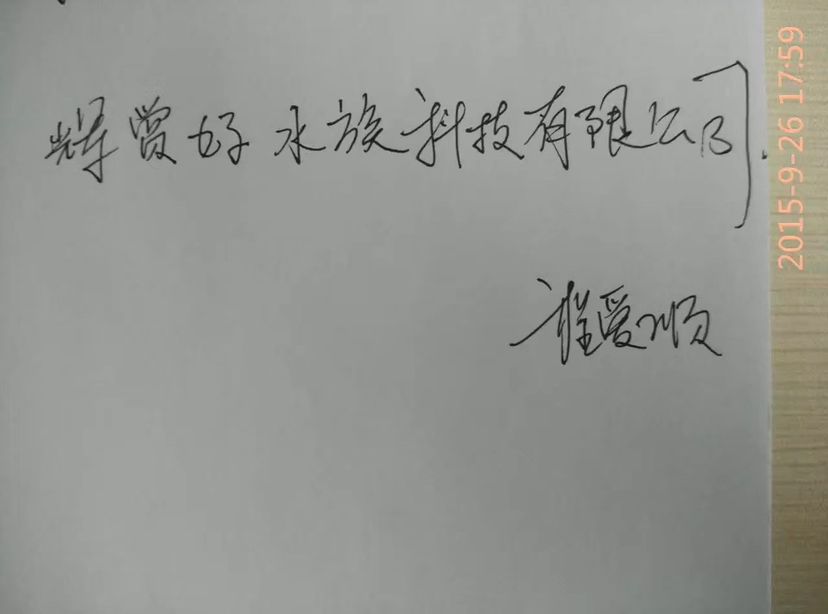 辉曾好水族科技有限公司.
爱顺
2015-9-26 17:59